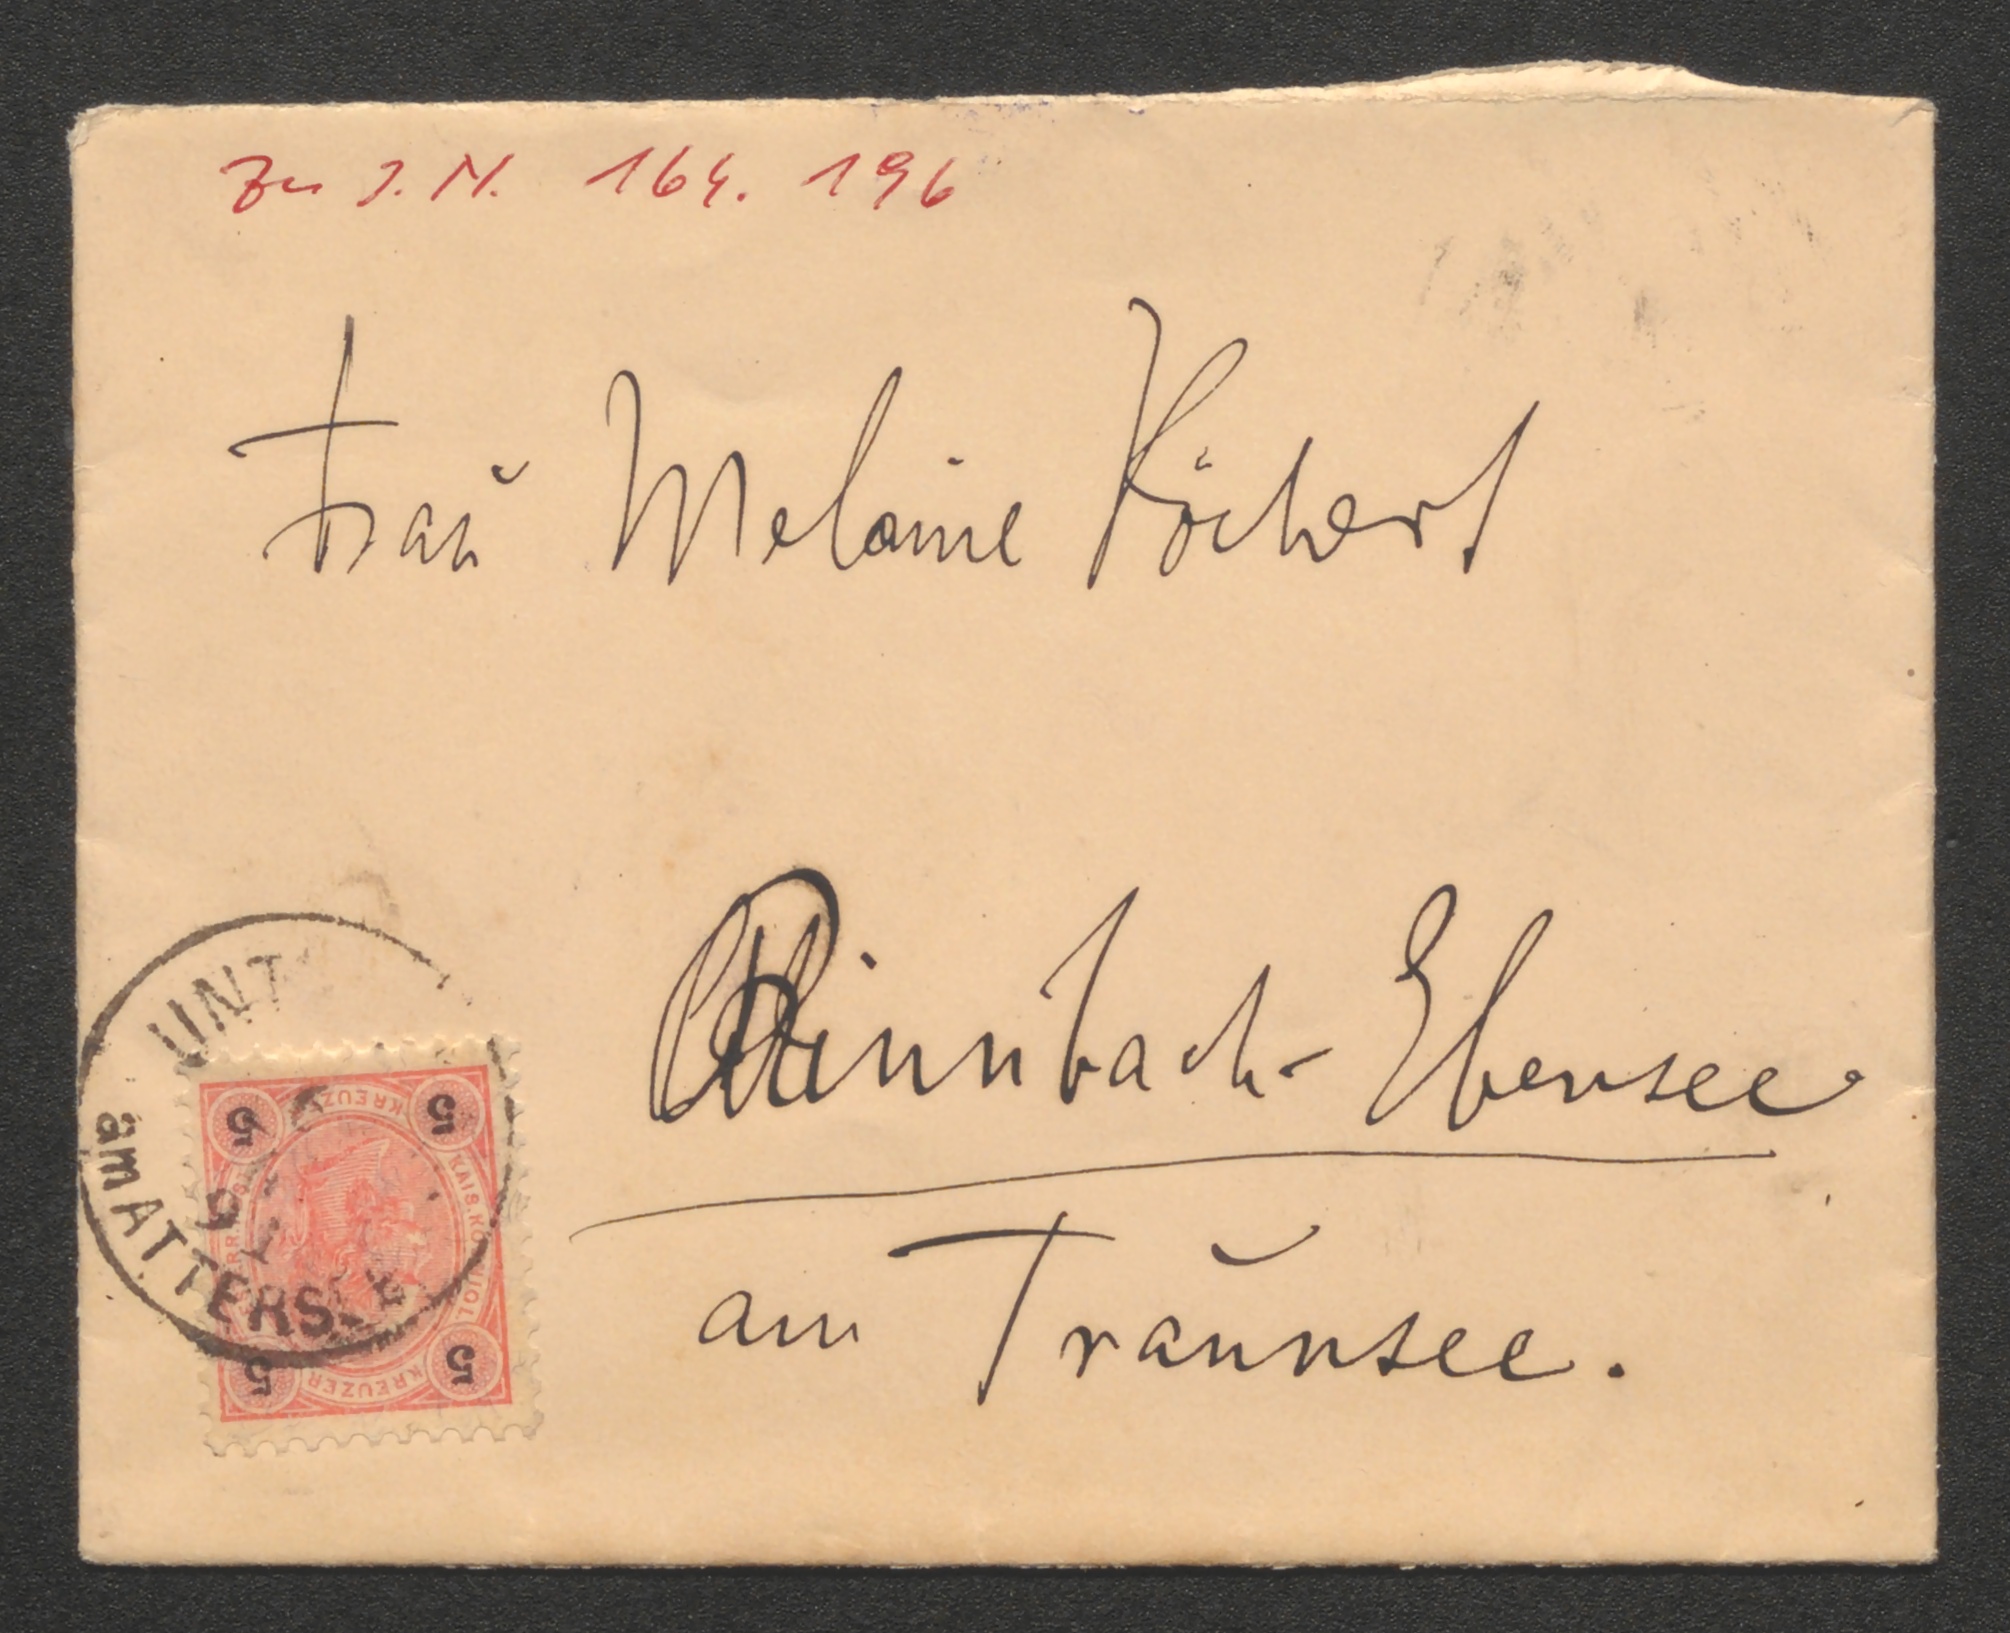 Zu I. N. 164. 196
Frau Melanie Köchert
Rinnbach-Ebensee
am Traunsee.
UNT
am ATTERSEE
5 KREUZER 5
KAIS. KÖ
5 KREUZER 5